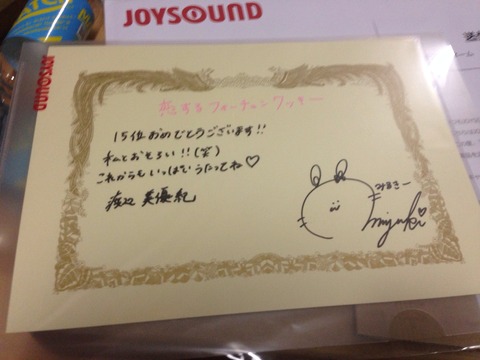 JOYSOUND
JOYSOUND
恋するフォーチュンクッキー
15位おめでとうございます!!
私とおそろい!!(笑)
これからもいっぱいうたってね♡
渡辺 美優紀
みるきー
miyuki